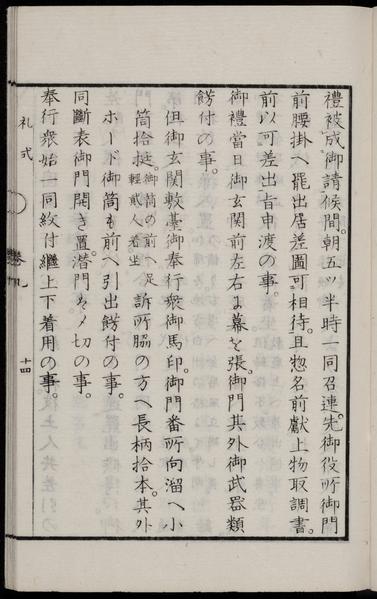 禮被成御請候間。朝五ツ半時一同召連。先御役所御門
前腰掛へ罷出居差圖可相待。且惣名前獻上物取調書。
前以可差出旨申渡の事。
御禮當日御玄関前左右に幕を張。御門其外御武器類
餝付の事。
但御玄関敷臺御奉行衆御馬印。御門番所向溜へ小
筒拾挺。御筒の前へ足輕貮人着坐訴所脇の方へ長柄拾本。其外
ホード御筒も前へ引出餝付の事。
同斷表御門開き置。潜門〆切の事。
奉行衆始一同紋付繼上下着用の事。
礼式
卷九
十四